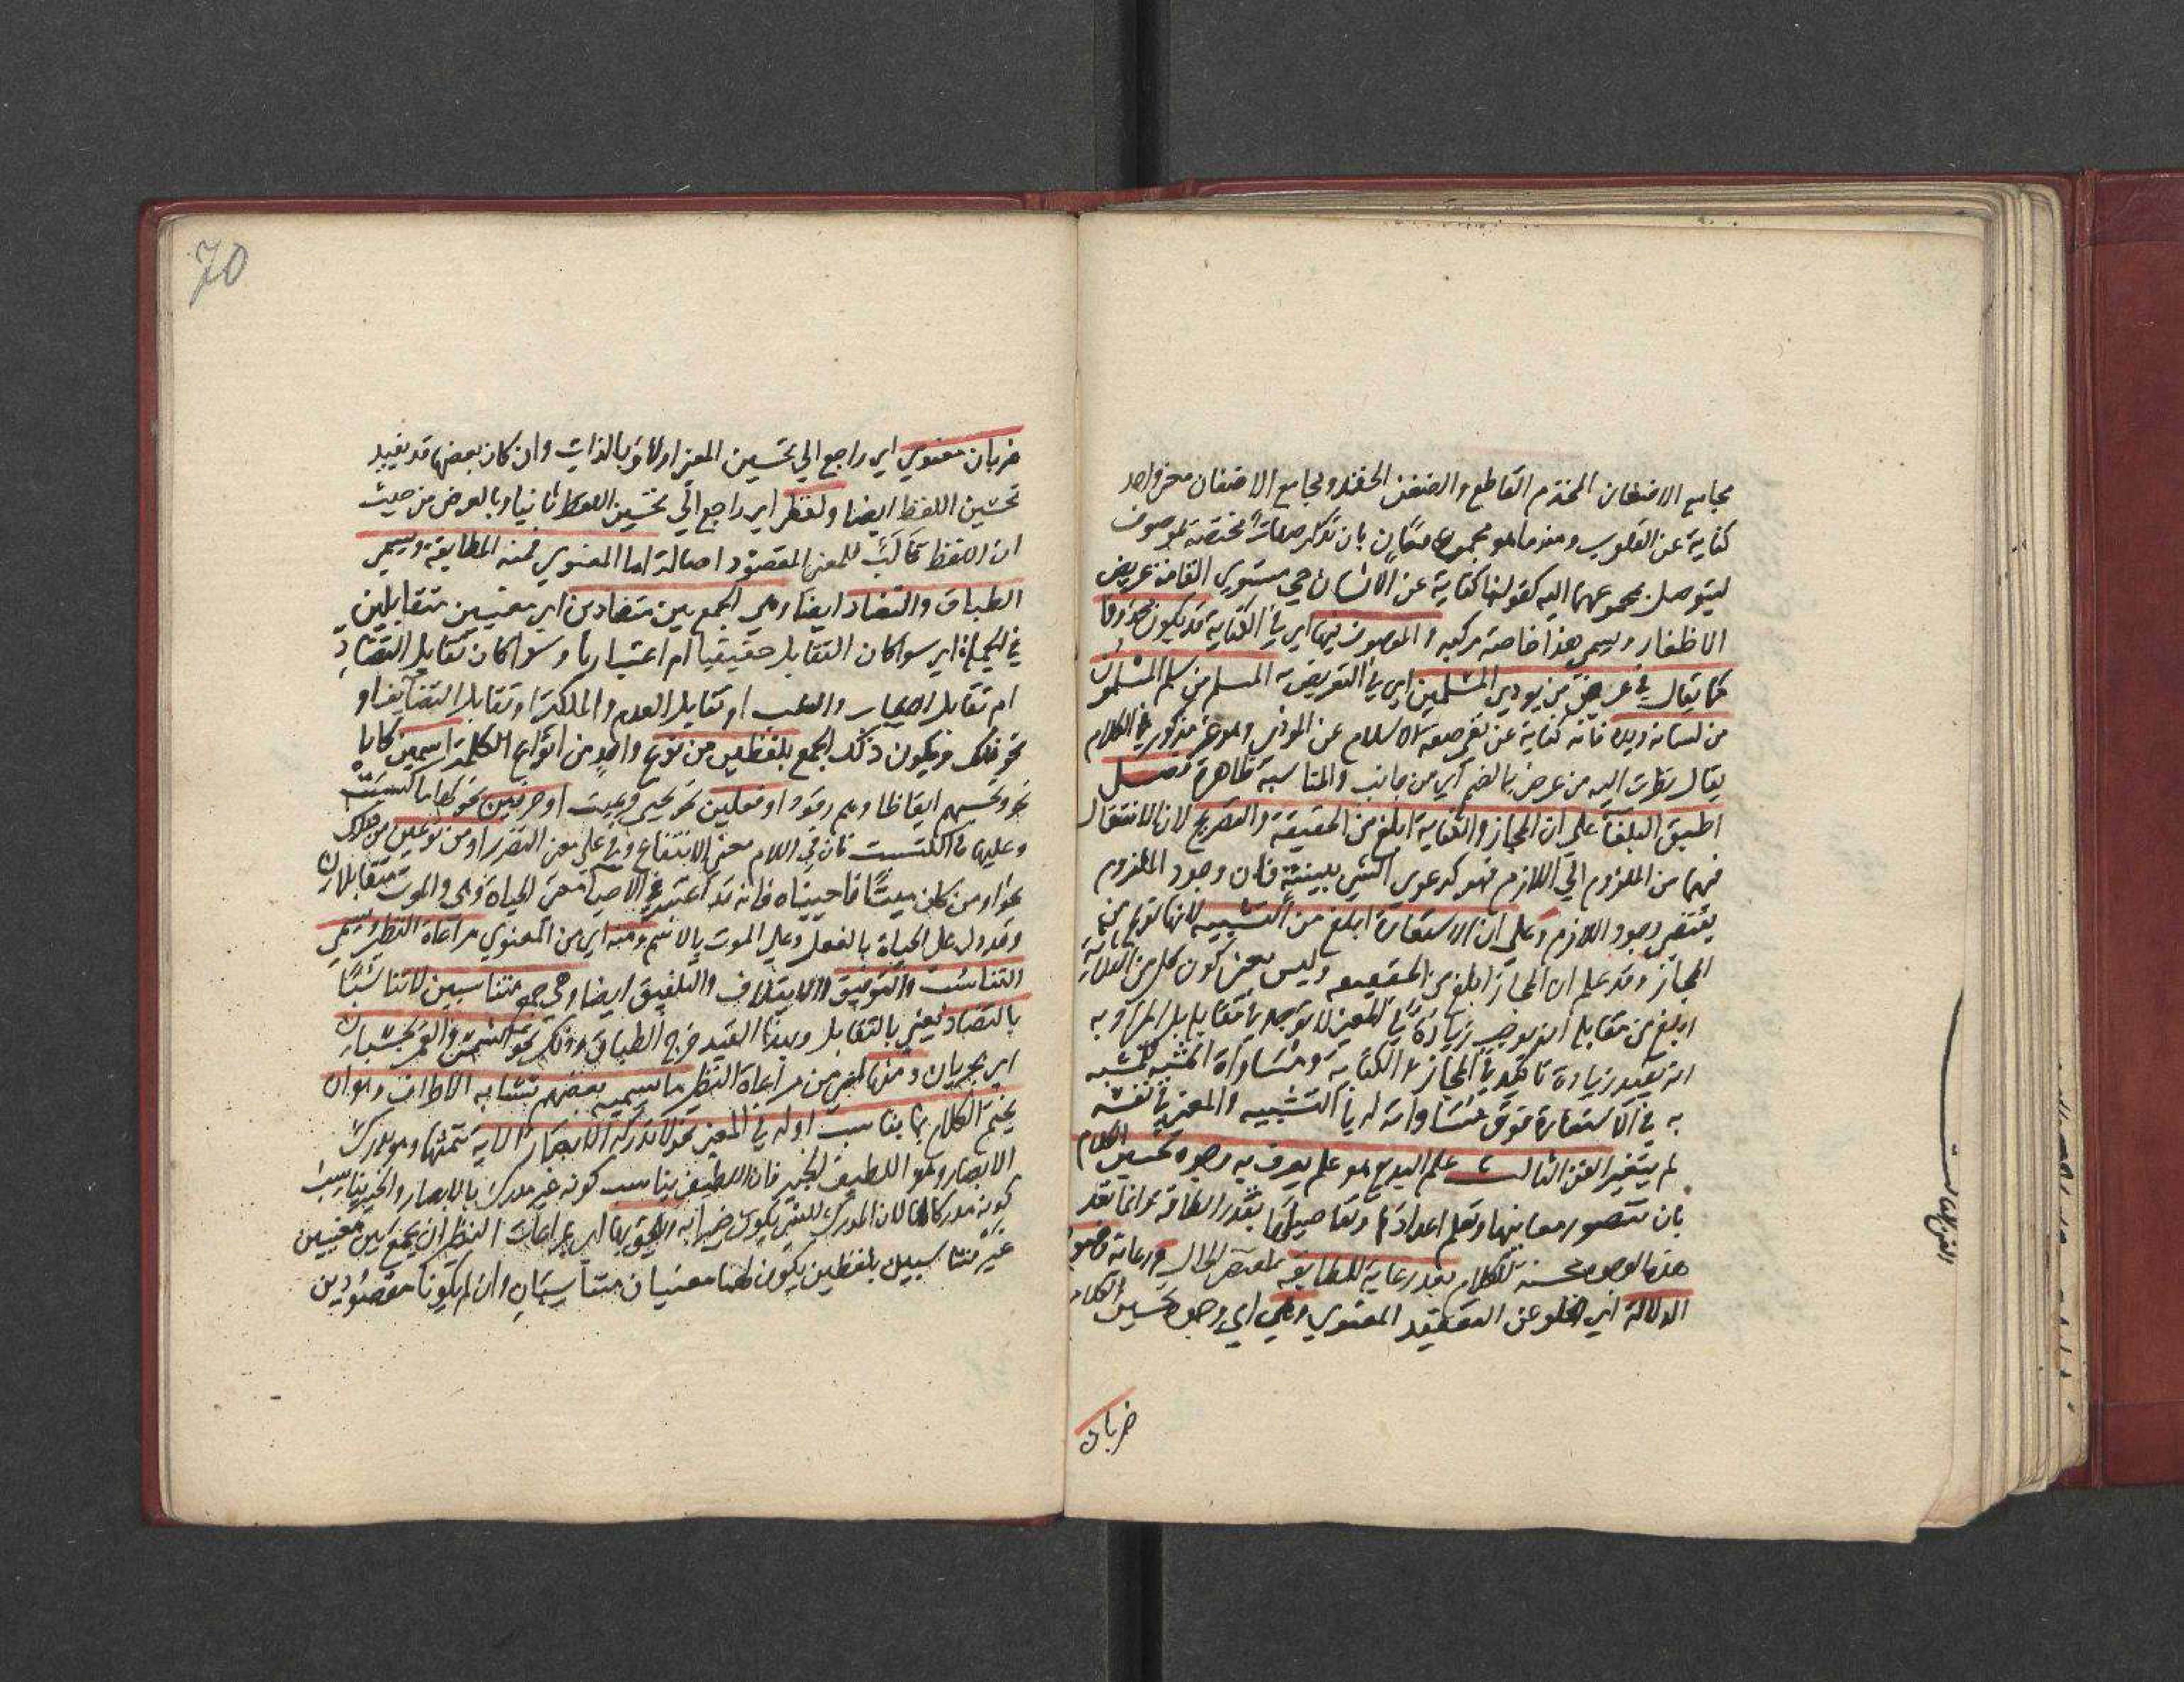 مجامع الاضغان المخذم القاطع والضغن الحقد ومجامع الاضغان معنى واحد
كناية عن القلوب ومنها ما هو مجموع معان بان تذكر صفات مختصة بموصوف
ليتوصل بمجموعها اليه كقولنا كناية عن الانسان حي مستوي القامة عريض
الاظفار ويسمى هذا خاصة مركبه والموصوف فيها اي في الكناية قد يكون محذوفا
كما يقال في عرض من يوذي المسلمين اي في التعريض به المسلم من سلم المسلمون
من لسانه ويده فانه كناية عن نفي صفة الاسلام عن الموذي وهو غير مذكور في الكلام
يقال نظرت اليه من عرض بالضم اي من جانب والمناسبة ظاهرة فصل
اطبق البلغا علي ان المجاز والكناية ابلغ من الحقيقة والتصريح لان الانتقال
فيهما من الملزوم الي اللازم فهو كدعوي الشي ببينة فان وجود الملزوم
يقتضي وجود اللازم وعلي ان الاستعارة ابلغ من التشبيه لانها نوع من
المجاز وقد علم ان المجاز ابلغ من الحقيقه وليس معنى كون كل من
ابلغ من مقابله انه يوجب زيادة في المعنى لا توجد في مقابله بل المراد به
انه يفيد زيادة تاكيد في المجاز والكناية ومساواة المشبه للمشبه
به في الاستعارة فوق مساواته له في التشبيه والمعنى في نفسه
لم يتغير الفن الثالث علم البديع هو علم يعرف به وجوه تحسين الكلام
بان تتصور معانيها وتعلم اعدادها وتفاصيلها بقدر الطاقة وانما تعد
هذه الوجوه محسنة للكلام بعد رعاية المطابقه لمقتضى الحال ورعاية وضوح
الدلالة اي الخلو عن التعقيد المعنوي وهي اي وجوه تحسين الكلام
ضربان
الفن الثالث
70
ضربان معنوي اي راجع الي تحسين المعنى اولا وبالذات وان كان بعضها قد يفيد
تحسين اللفظ ايضا ولفظي اي راجع الي تحسين اللفظ ثانيا وبالعرض من حيث
ان اللفظ قالب للمعنى المقصود اصالة اما المعنوي فمنه المطابقة ويسمى
الطباق والتضاد ايضا وهي الجمع بين متضادين اي معنيين متقابلين
في الجملة اي سوا كان التقابل حقيقيا ام اعتباريا وسوا كان تقابل التضاد
ام تقابل الايجاب والسلب او تقابل العدم والملكة او تقابل التضايف او
نحو ذلك ويكون ذلك الجمع بلفظين من نوع واحد من انواع الكلمة اسمين كانا
نحو وتحسبهم ايقاظا وهم رقود او فعلين نحو يحيي ويميت او حرفين نحو لها ما كسبت
وعليها ما اكتسبت فان في اللام معنى الانتفاع وفي علي معنى التضرر او من نوعين
نحو او من كان ميتا فاحييناه فانه قد اعتبر في الاحيا معنى الحياة وهي والموت متقابلان
وقد دل على الحياة بالفعل وعلى الموت بالاسم ومنه اي من المعنوي مراعاة النظير ويسمى
التناسب والتوفيق والايتلاف والتلفيق ايضا وهي جمع متناسبين لا تناسبا
بالتضاد يعني بالتقابل وبهذا القيد خرج الطباق وذلك نحو الشمس والقمر بحسبان
اي يجريان ومنها اي من مراعاة النظير ما يسميه بعضهم تشابه الاطراف وهو ان
يختم الكلام بما يناسب اوله في المعنى نحو لا تدركه الابصار الاية تتمتها وهو يدرك
الابصار وهو اللطيف الخبير فان اللطيف يناسب كونه غير مدرك بالابصار والخبير يناسب
كونه مدركا لها لان المدرك للشي يكون خبيرا به والحق بها اي بمراعات النظير ان يجمع بين معنيين
غير متناسبين بلفظين يكون لهما معنيان متناسبان وان لم يكونا مقصودين